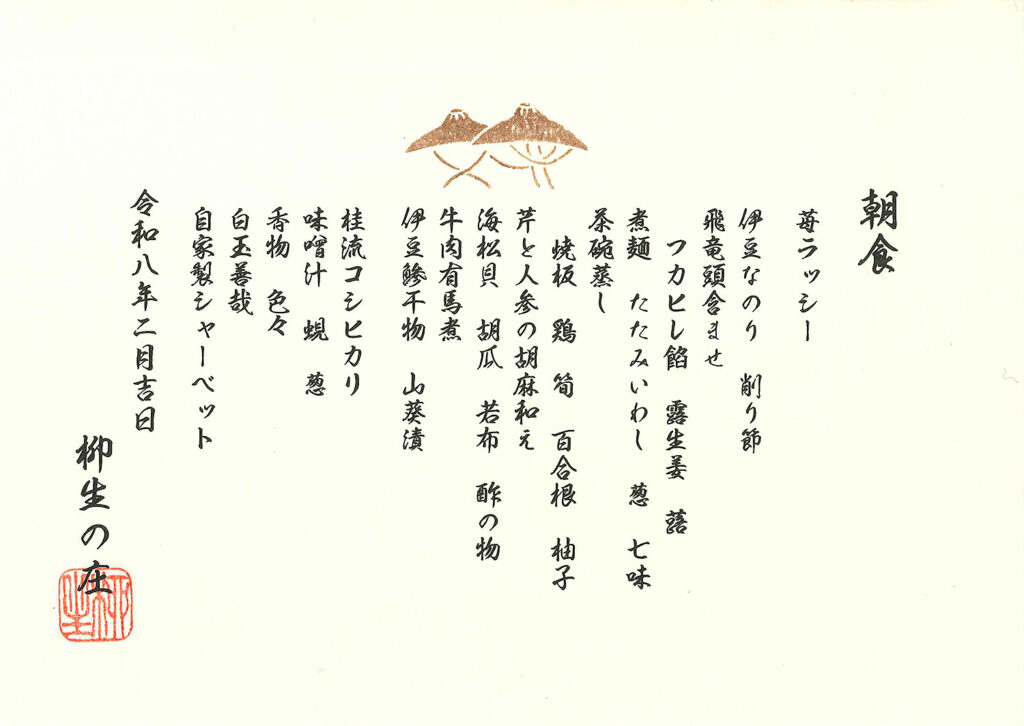 朝食
苺ラッシー
伊豆なのり 削り節
飛竜頭含ませ
フカヒレ餡 露生姜 蕗
煮麺 たたみいわし 葱 七味
茶碗蒸し
焼板 鶏 筍 百合根 柚子
芹と人参の胡麻和え
海松貝 胡瓜 若布 酢の物
牛肉有馬煮
伊豆鯵干物 山葵漬
桂流コシヒカリ
味噌汁 蜆 葱
香物 色々
白玉善哉
自家製シャーベット
令和八年二月吉日
柳生の庄